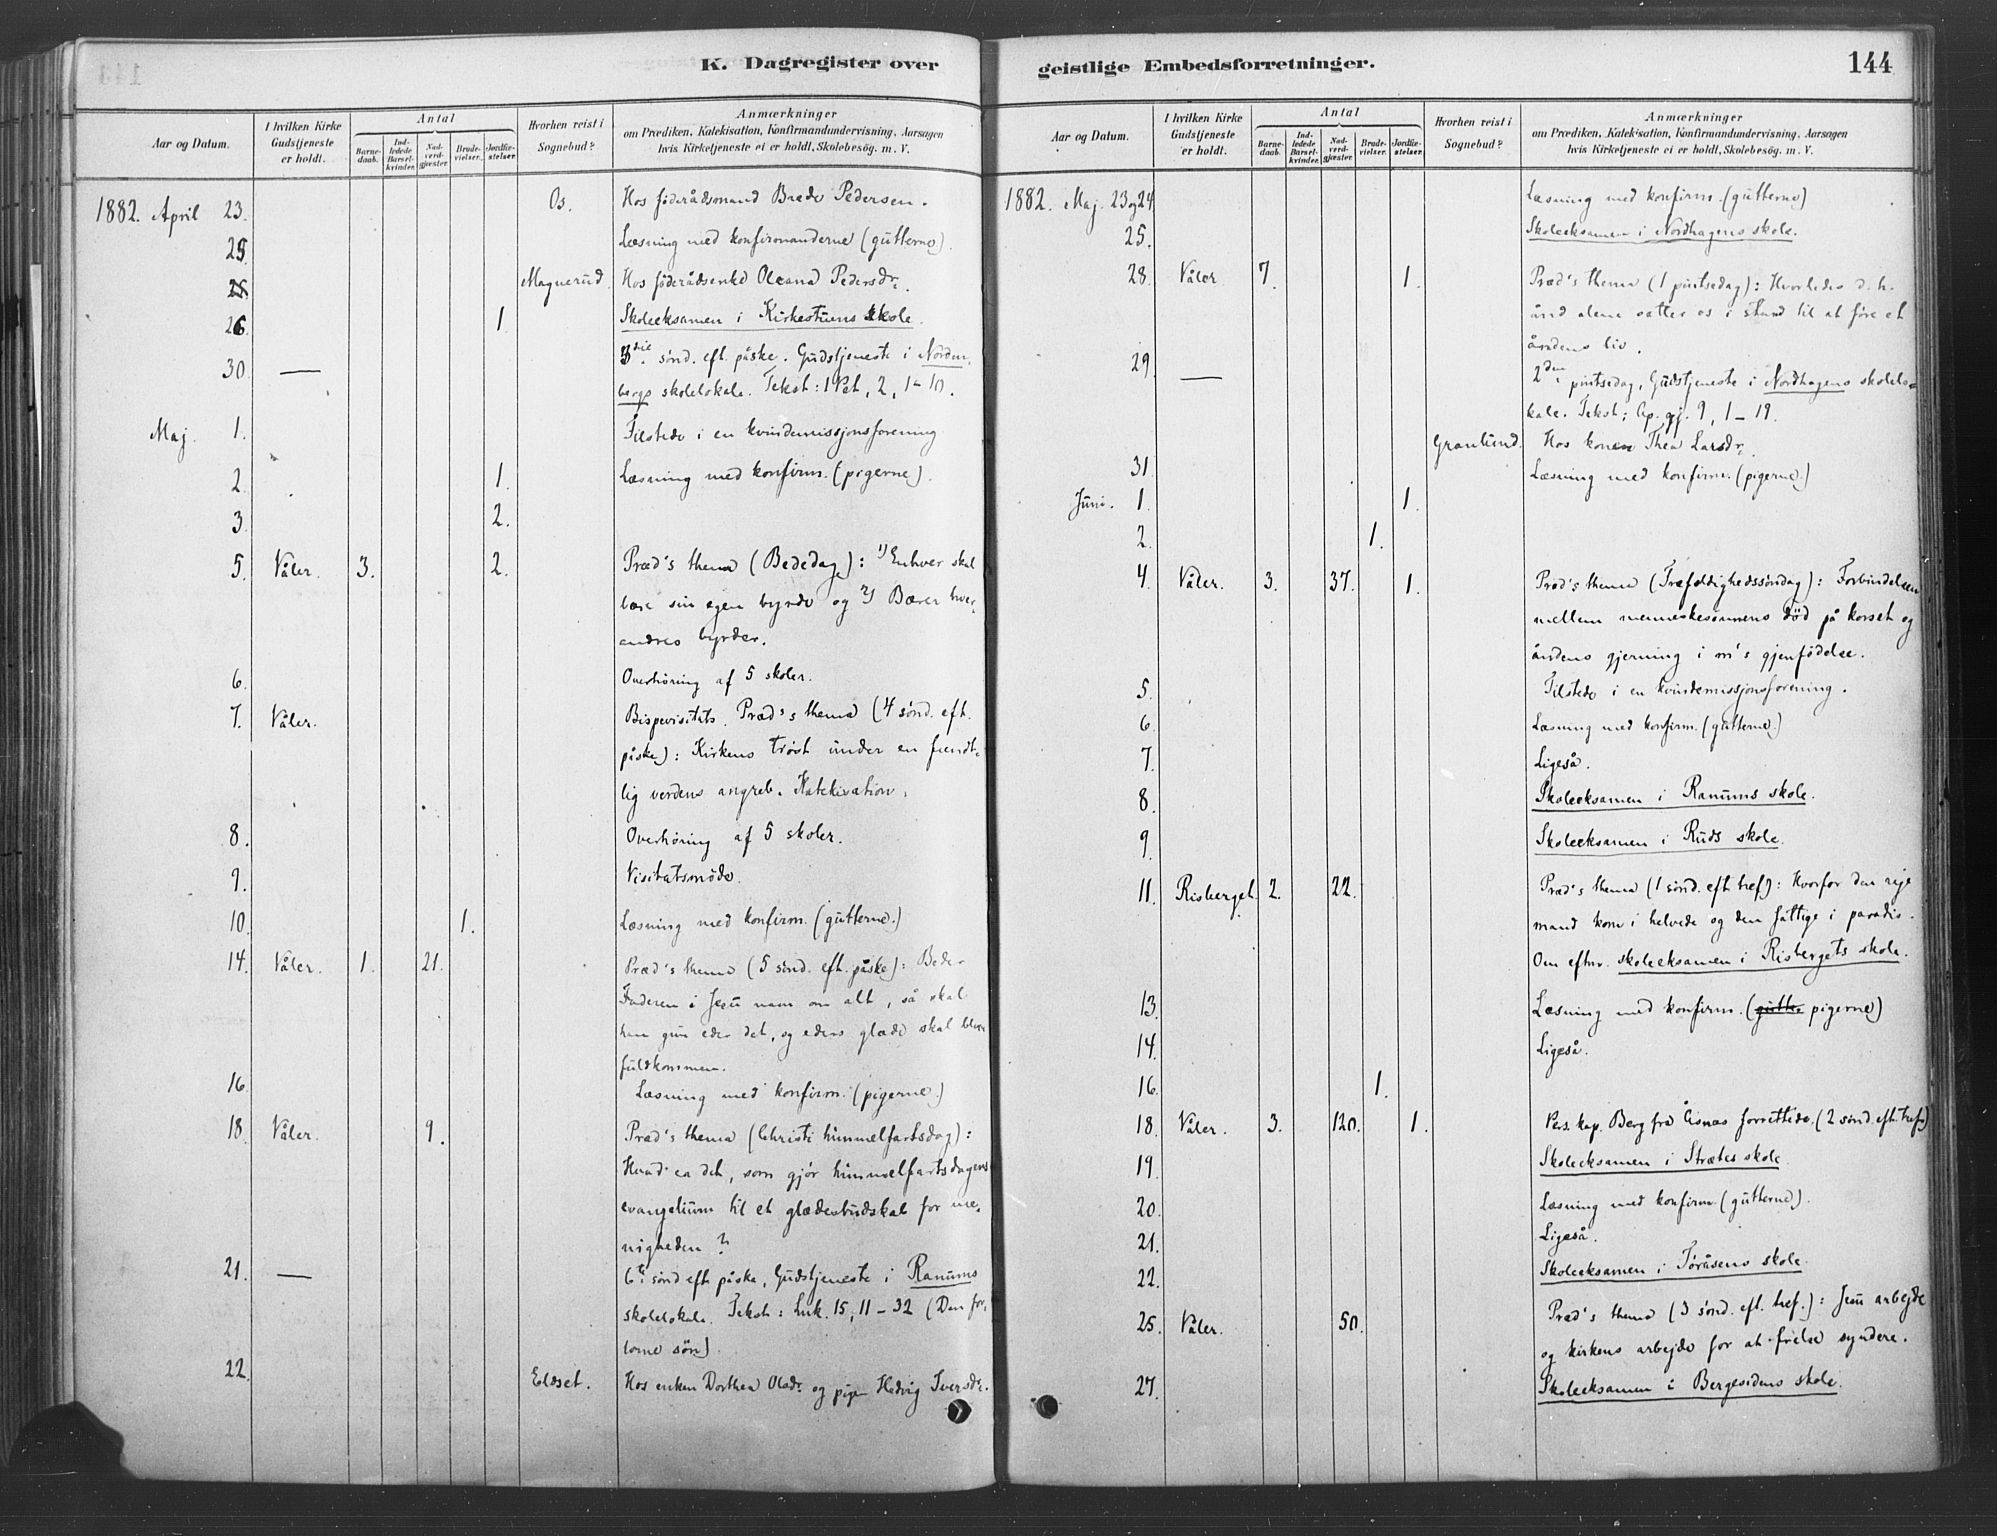 K. Dagregister over
Aar og Datum. I hvilken Kirke Gudstjeneste er holdt. Antal Barnedaab. Indledede Barselkvinder. Nadverdgjæster. Brudevielser. Jordfæstelser. Hvorhen reist i Sognebud? Anmærkninger
om Prædiken, Katekisation, Konfirmandundervisning, Aarsagen
hvis Kirketjeneste ei er holdt, Skolebesøg. m. V.
1882. April 23. Os. Hos föderådsmand Brede Pedersen.
25. Læsning med konfirmanderne (gutterne).
Magnerud. Hos föderådsenke Oleana Pedersdr.
26. 1. Skoleeksamen i Kirkestuens skole.
30. — 3die sönd. eft. påske. Gudstjeneste i Norden-
bergs skolelokale. Tekst: 1 Pet, 2, 1-10.
Maj. 1. Tilstede i en kvindemissjonsforening
2. 1. Læsning med konfirm. (pigerne).
3. 2.
5. Våler. 3. 2. Præd's thema (Bededag): 1) Enhver skal
bære sin egen byrde og 2) Bærer hver-
andres byrder.
6. Overhöring af 5 skoler.
7. Våler. Bispevisitats. Præd's thema (4 sönd. eft.
påske): Kirkens tröst under en fiendt-
lig verdens angreb. Katekisation.
8. Overhöring af 5 skoler.
9. Visitatsmöde.
10. 1. Læsning med konfirm. (gutterne.)
14. Våler. 1. 21. Præd's thema (5 sönd. eft. påske): Beder
Faderen i Jesu navn om alt, så skal
han give eder det, og eders glæde skal blive
fuldkommen.
16. Læsning med konfirm. (pigerne.)
18. Våler. 9. Præd's thema (Christi himmelfartsdag):
Hvad er det, som gjör himmelfartsdagens
evangelium til et glædesbudskab for me-
nigheden?
21. — 6te sönd eft. påske, Gudstjeneste i Ranums
skolelokale. Tekst: Luk. 15, 11-32 (Den for-
lorne sön).
22. Eldset. Hos enken Dorthea Olsdr. og pige Hedvig Iversdr.
geistlige Embedsforretninger. 144
Aar og Datum. I hvilken Kirke Gudstjeneste er holdt. Antal Barnedaab. Indledede Barselkvinder. Nadverdgjæster. Brudevielser. Jordfæstelser. Hvorhen reist i Sognebud? Anmærkninger
om Prædiken, Katekisation, Konfirmandundervisning, Aarsagen
hvis Kirketjeneste ei er holdt, Skolebesøg. m. V.
1882. Maj. 23 og 24. Læsning med konfirm. (gutterne)
25. Skoleeksamen i Nordhagens skole.
28. Våler 7. 1. Præd's thema (1 pintsedag): Hvorledes d. h.
ånd alene sætter os i stand til at före et
åndens liv.
29. — 2den pintsedag, Gudstjeneste i Nordhagens skolelo-
kale. Tekst: Ap. gj. 9, 1-19.
Granlund. Hos konen Thea Larsdr.
31. Læsning med konfirm. (pigerne.)
Juni. 1. 1.
2. 1.
4. Våler. 3. 37. 1. Præd's thema (Trefoldighedssöndag): Forbindelsen
mellem menneskesönnens död på korset og
åndens gjerning i m's gjenfödelse.
5. Tilstede i en kvindemissjonsforening.
6. Læsning med konfirm. (gutterne.)
7. Ligeså.
8. Skoleeksamen i Ranums skole.
9. Skoleeksamen i Ruds skole.
11. Risberget. 2. 22. Præd's thema (1 sönd. eft tref): Hvorfor den rige
mand kom i helvede og den fattige i paradis.
Om eftm. skoleeksamen i Risbergets skole.
13. Læsning med konfirm. (gutte pigerne)
14. Ligeså.
16. 1.
18. Våler. 3. 120. 1. Pers. kap. Berg fra Åsnes forrettede. (2 sönd. eft. tref.)
19. Skoleeksamen i Strætes skole.
20. Læsning med konfirm. (gutterne).
21. Ligeså.
22. Skoleeksamen i Toråsens skole.
25. Våler. 50. Præd's thema (3 sönd. eft. tref.): Jesu arbejde
og kirkens arbejde for at frelse syndere.
27. Skoleeksamen i Bergesidens skole.